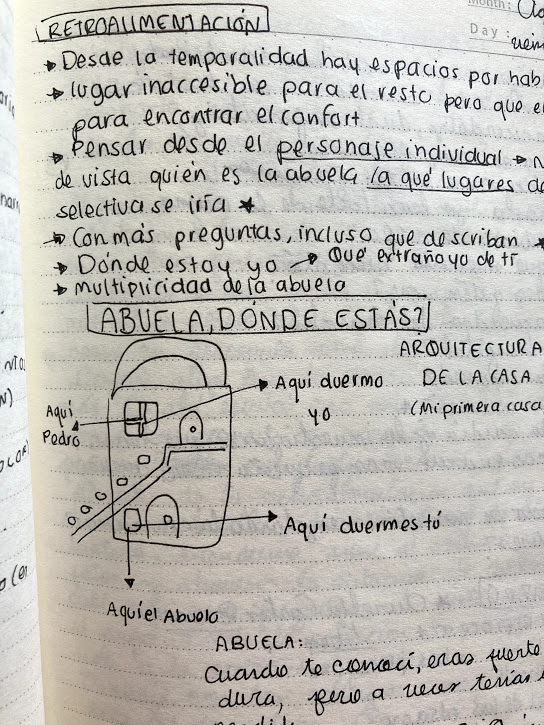 Month:
Day:
RETROALIMENTACIÓN
Desde la temporalidad hay espacios por hab
lugar inaccesible para el resto pero que e
para encontrar el confort
Pensar desde el personaje individual → N
de vista quién es la abuela (a qué lugares de
selectiva se iría ★
Con más preguntas, incluso que describan ★
Dónde estoy yo → Qué extraño yo de tí
multiplicidad de la abuela
ABUELA, DÓNDE ESTÁS?
ARQUITECTURA
DE LA CASA
(Mi primera casa
Aquí duermo
yo
Aquí
Pedro
Aquí duermes tú
Aquí el Abuelo
ABUELA:
Cuando te conocí, eras fuerte
dura, pero a veces tenías